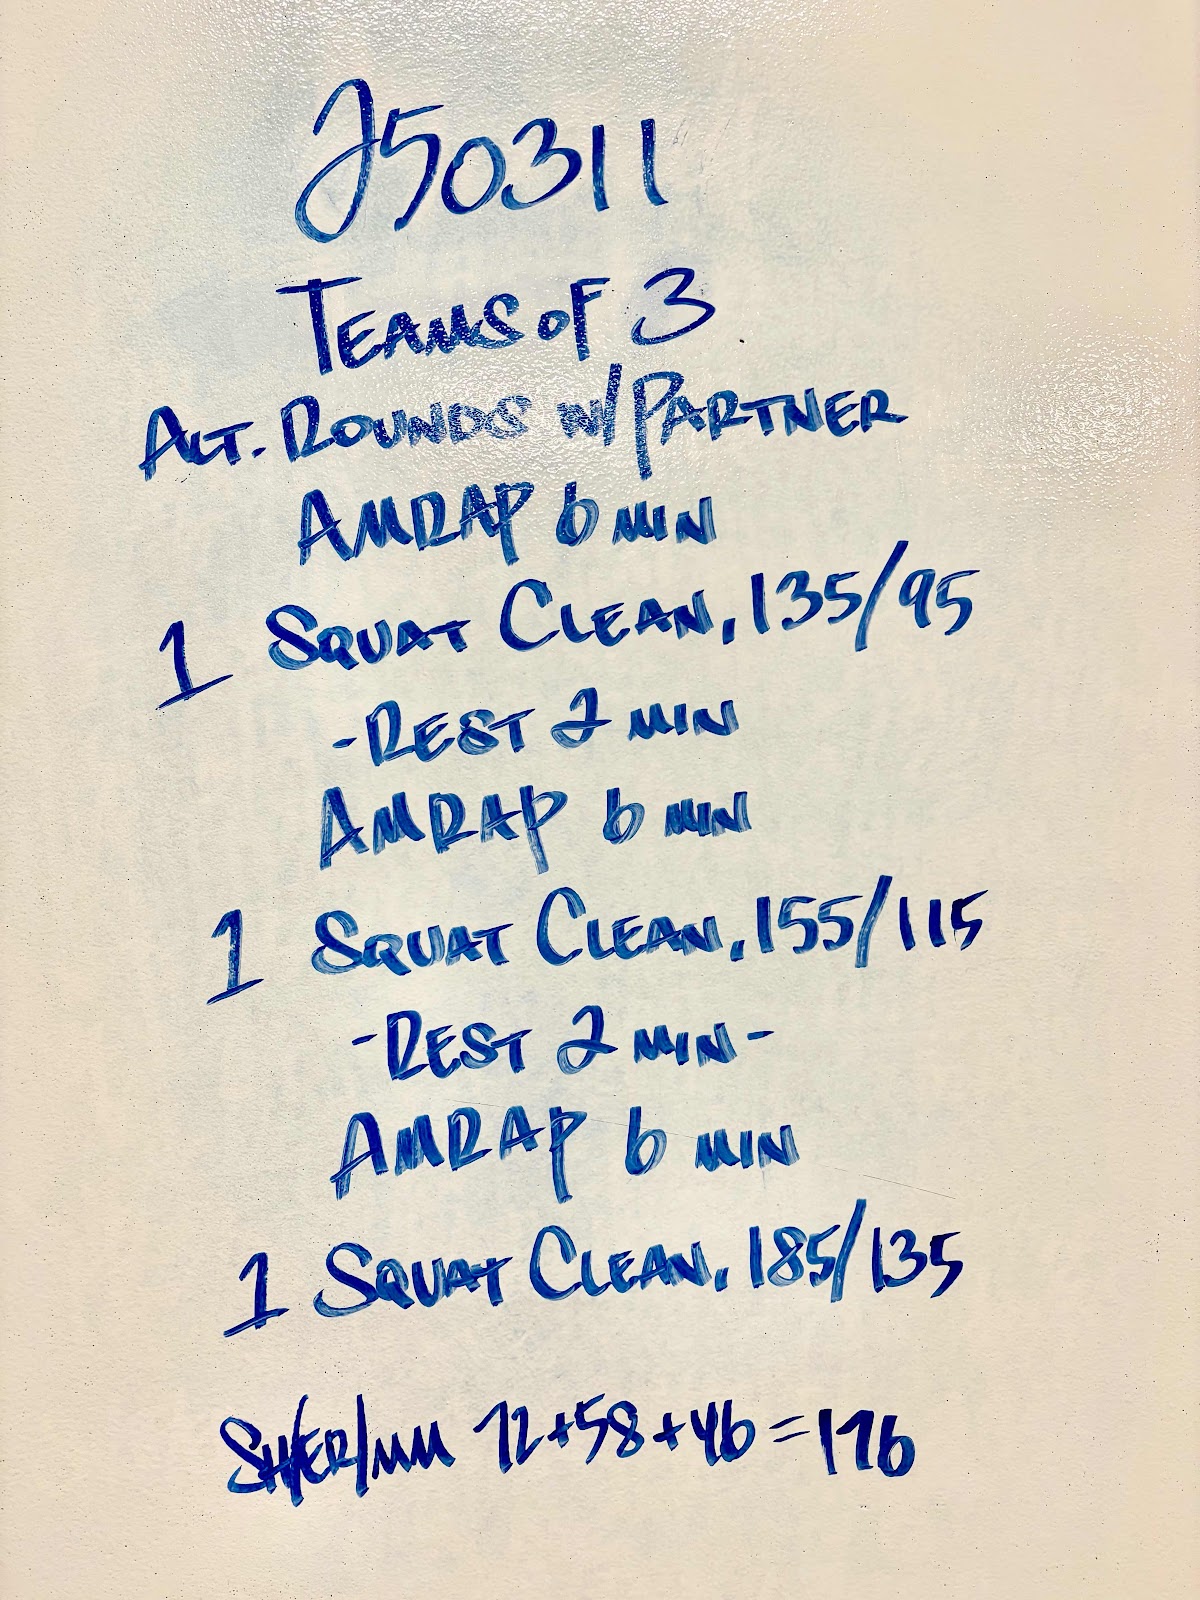 250311
TEAMS OF 3
ALT. ROUNDS W/PARTNER
AMRAP 6 MIN
1 SQUAT CLEAN, 135/95
-REST 2 MIN
AMRAP 6 MIN
1 SQUAT CLEAN, 155/115
-REST 2 MIN-
AMRAP 6 MIN
1 SQUAT CLEAN, 185/135
SH/ER/MM 72+58+46=176